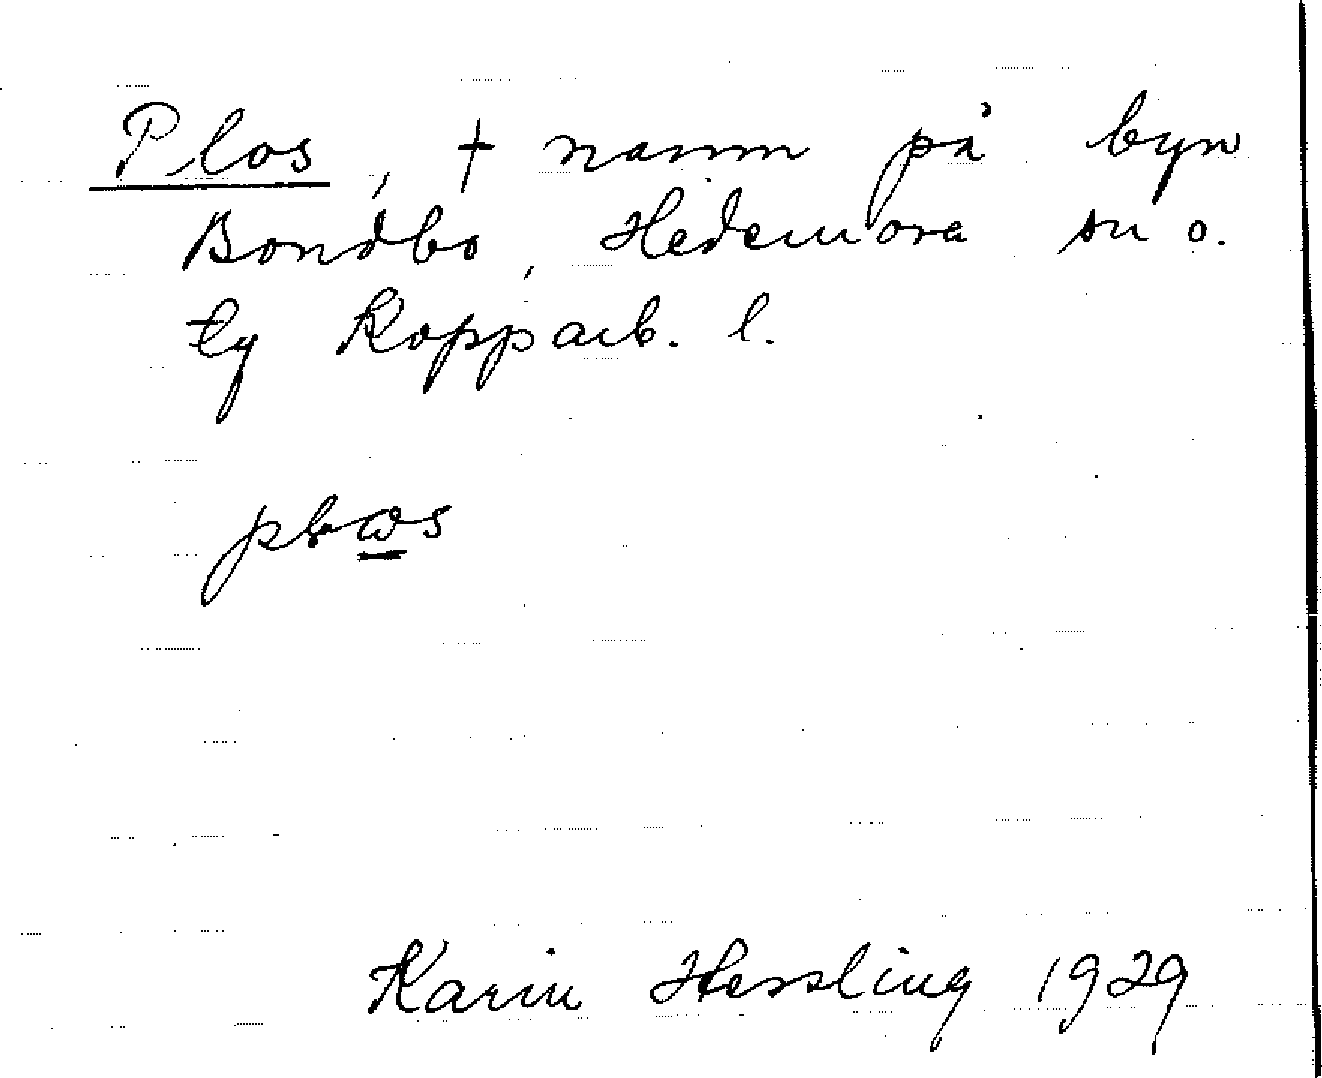 Plos, † namn på byn
Bondbo, Hedemora sn o.
tg Kopparb. l.
Karin Hessling 1929